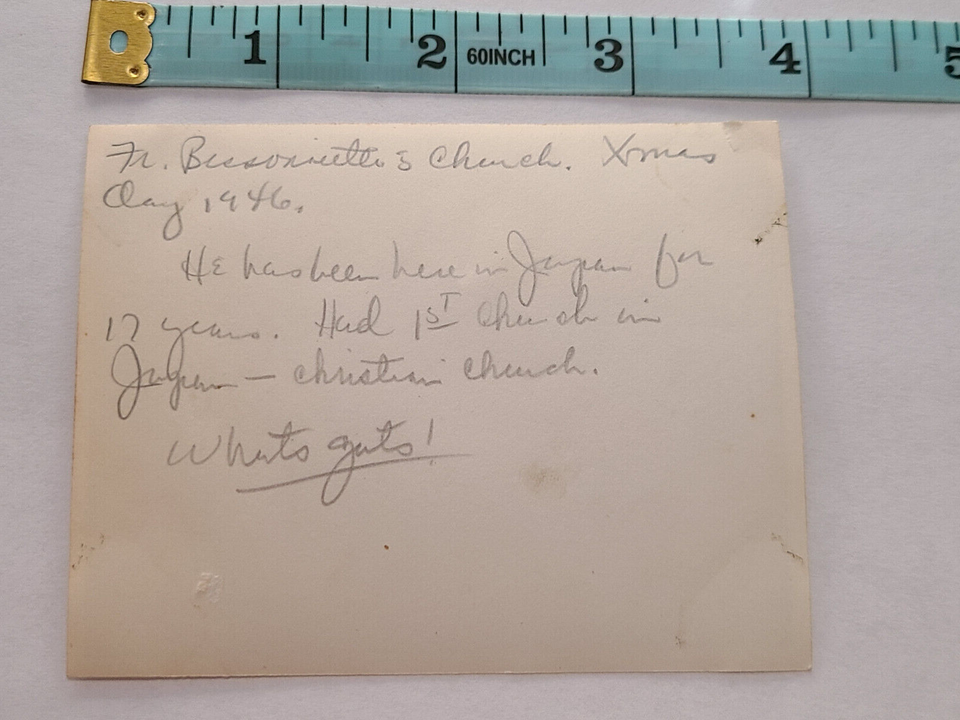 1 2 60INCH 3 4 5
Fr. Bissonnette's Church. Xmas
Day 1946.
He has been here in Japan for
17 years. Had 1ST Church in
Japan — christian church.
Whats guts!